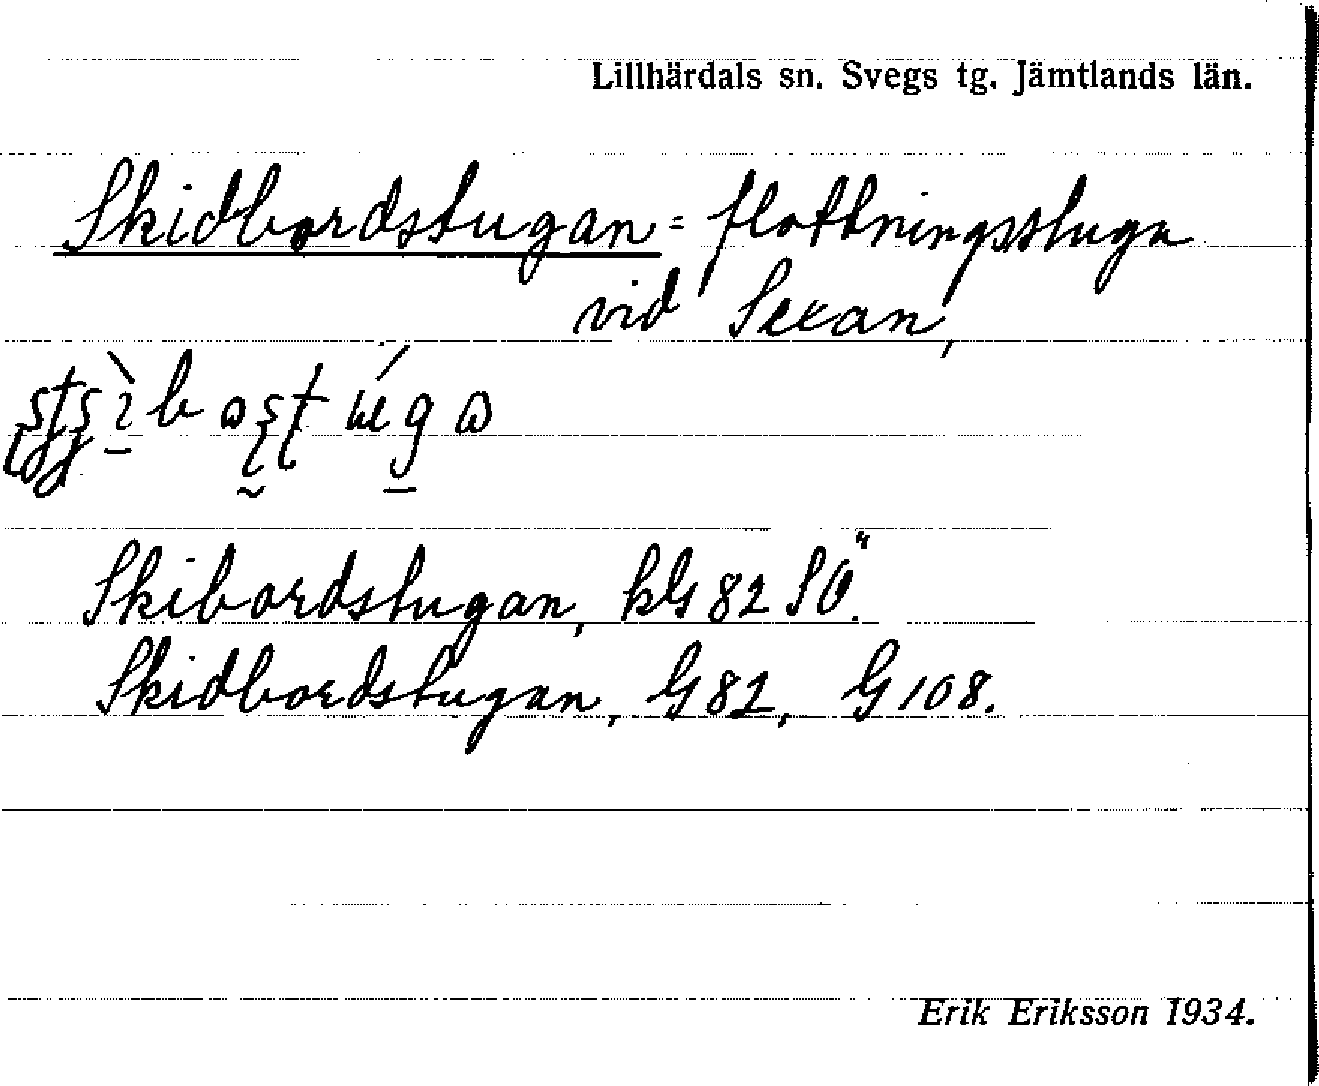 Lillhärdals sn. Svegs tg. Jämtlands län.
Skidbordstugan = flottningsstuga
vid Sexan,
Skibordstugan, kG 82 SÖ.
Skidbordstugan, G 82, G 108.
Erik Eriksson 1934.